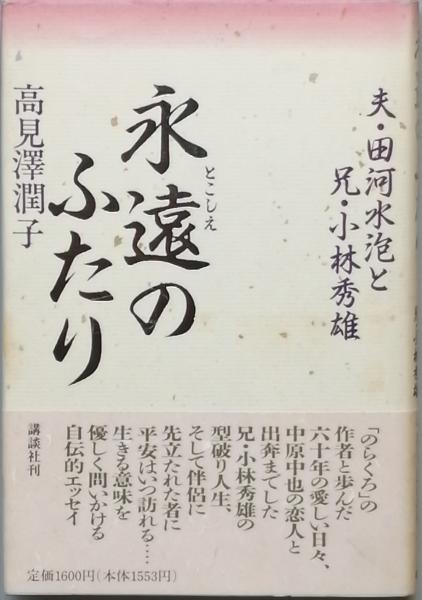 夫・田河水泡と
兄・小林秀雄
永遠の
とこしえ
ふたり
高見澤潤子
「のらくろ」の
作者と歩んだ
六十年の愛しい日々、
中原中也の恋人と
出奔までした
兄・小林秀雄の
型破り人生、
そして伴侶に
先立たれた者に
平安はいつ訪れる……
生きる意味を
優しく問いかける
自伝的エッセイ
講談社刊
定価1600円(本体1553円)